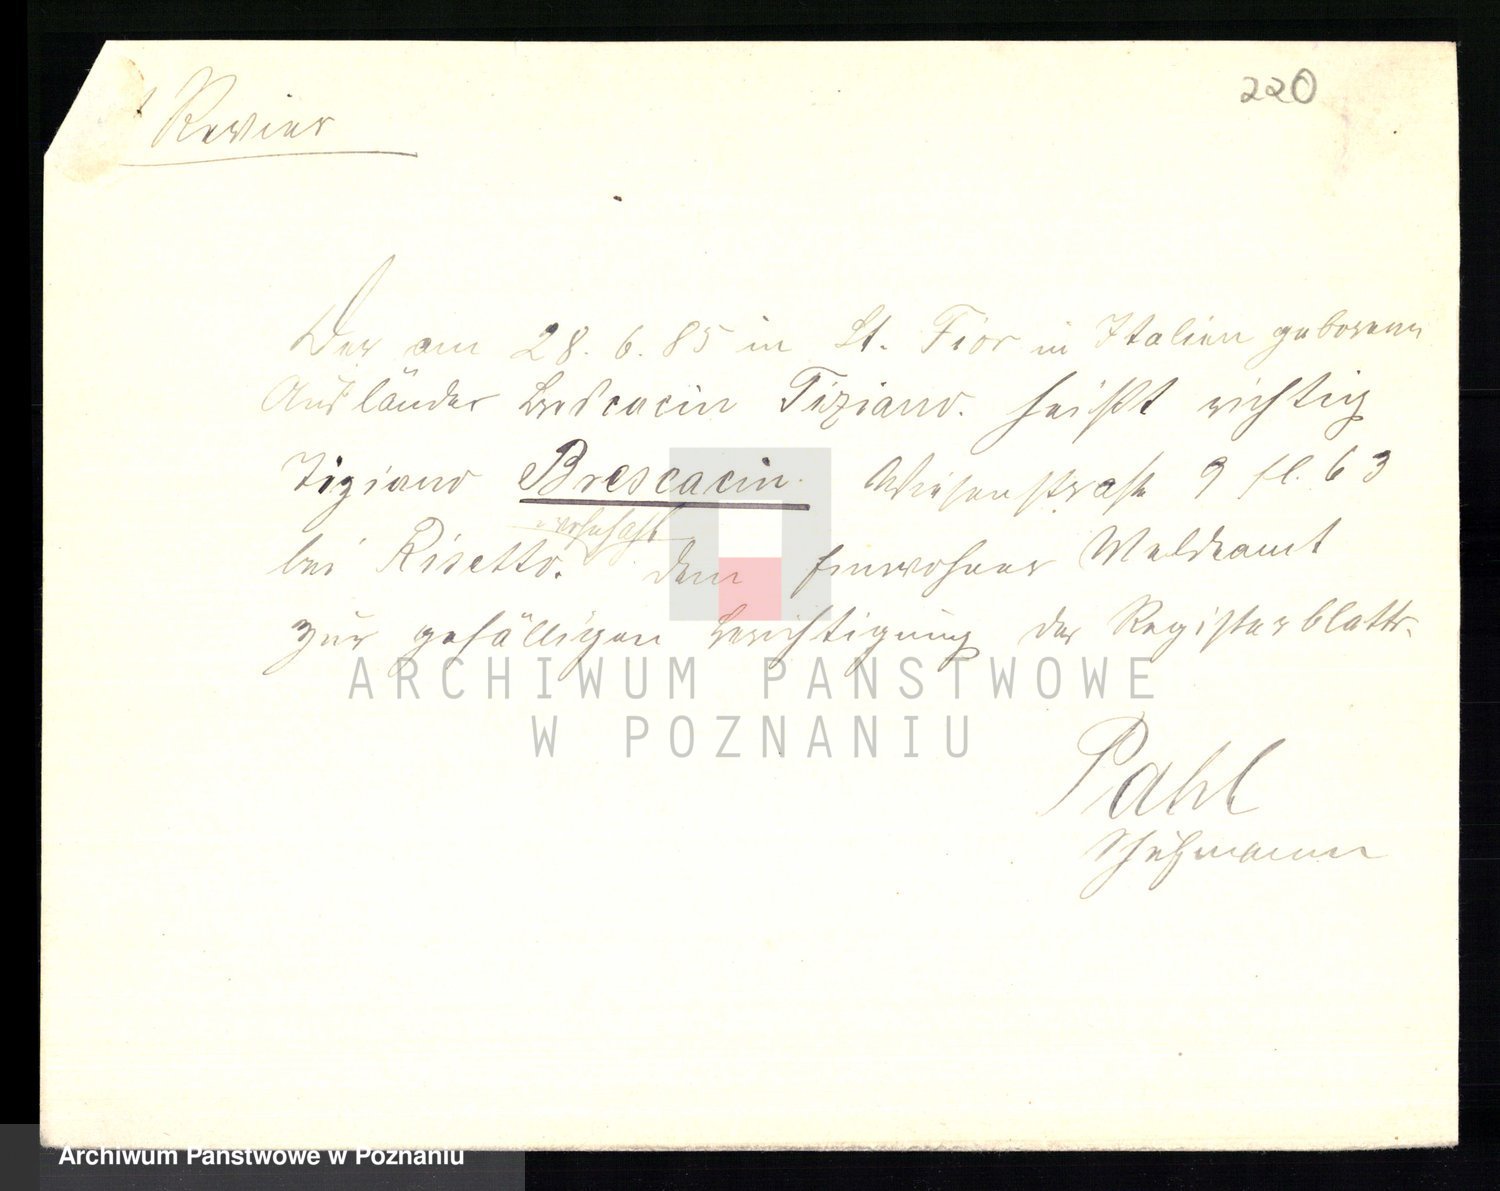 220
Revier
Der am 28. 6. 85 in St. Fior in Italien geborene
Ausländer Brescacin Tiziano. heißt richtig
Tiziano Brescacin. Wiesenstraße 9 fl. 63
wohnhaft
bei Risetto. dem Einwohner Meldeamt
zur gefälligen Berichtigung des Registerblatts.
ARCHIWUM PANSTWOWE
W POZNANIU
Pahl
Schutzmann
Archiwum Panstwowe w Poznaniu